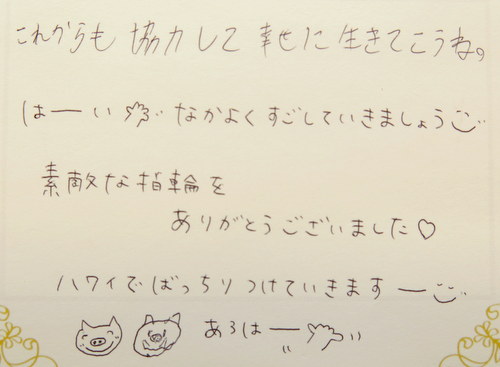 これからも協力して幸せに生きてこうね。
はーい なかよくすごしていきましょう
素敵な指輪を
ありがとうございました♡
ハワイでばっちりつけていきますー
あろはー